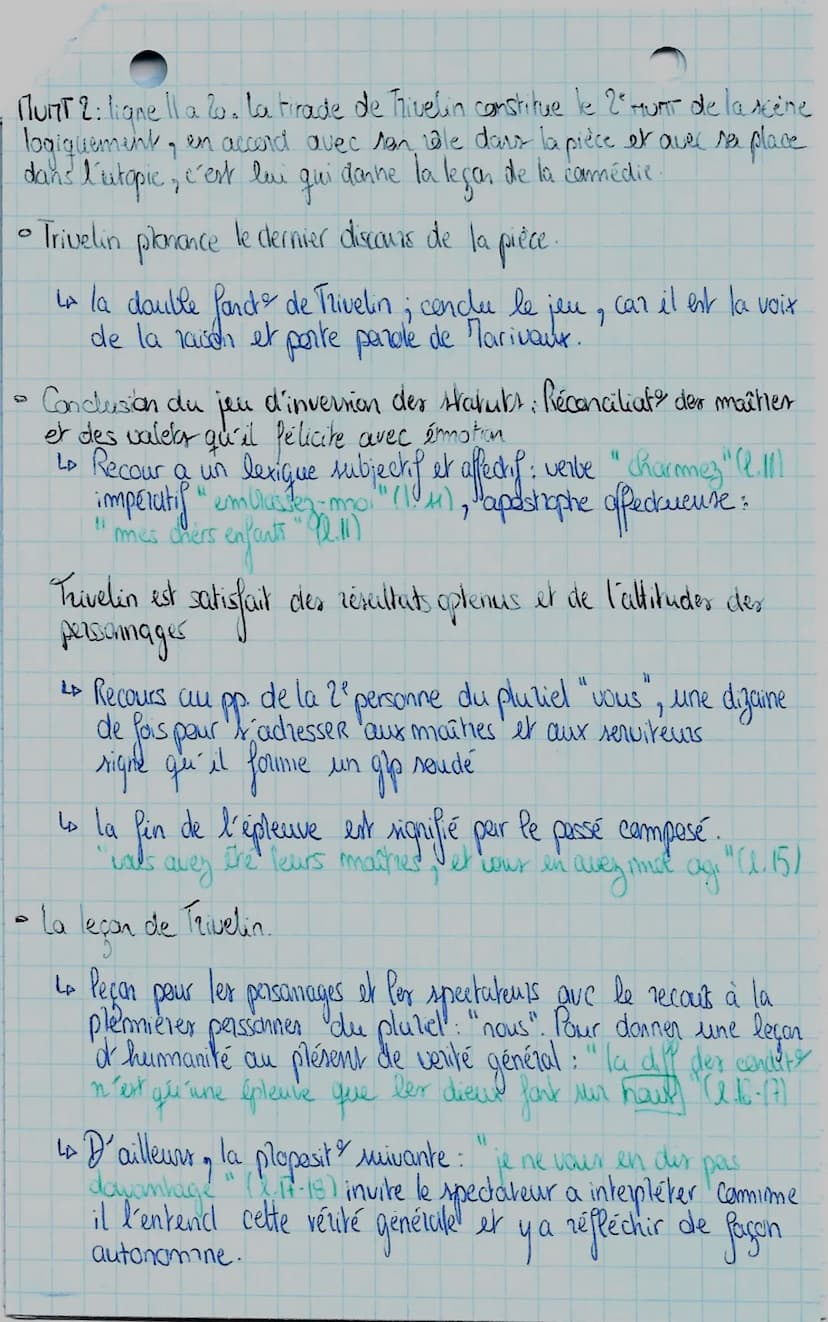 MVMT 2 : ligne 11 a 20. La tirade de Trivelin constitue le 2e mvmt de la scène
logiquement, en accord avec son rôle dans la pièce et avec sa place
dans l'utopie, c'est lui qui donne la leçon de la commédie.
Trivelin prononce le dernier discours de la pièce.
↳ la double fonct° de Trivelin ; conclu le jeu, car il est la voix
de la raison et porte parole de Marivaux.
Conclusion du jeu d'inversion des statuts : Réconciliat° des maîtres
et des valets qu'il félicite avec émmotion
↳ Recour a un lexique subjectif et affectif : verbe "charmez" (l.11)
impératif "embrassez-moi" (l.11), apostrophe affectueuse :
"mes chers enfants" (l.11)
Trivelin est satisfait des résultats optenus et de l'attitudes des
personnages
↳ Recours au pp. de la 2e personne du pluriel "vous", une dizaine
de fois pour s'adresser aux maîtres et aux serviteurs
signe qu'il forme un grp soudé
↳ la fin de l'épreuve est signifié par le passé composé.
"vous avez été leurs maîtres, et vous en avez mal agi" (l.15)
La leçon de Trivelin.
↳ leçon pour les personages et les spectateurs avc le recours à la
plemmières perssonnes du pluriel : "nous". Pour donner une leçon
d'humanité au présent de vérité général : "la diff des condit°
n'est qu'une épreuve que les dieux font sur nous" (l.16-17)
↳ D'ailleurs, la proposit° suivante : "je ne vous en dis pas
davantage" (l.17-18) invite le spectateur a interpréter comme
il l'entend cette vérité générale et y a réfléchir de façon
autonomne.